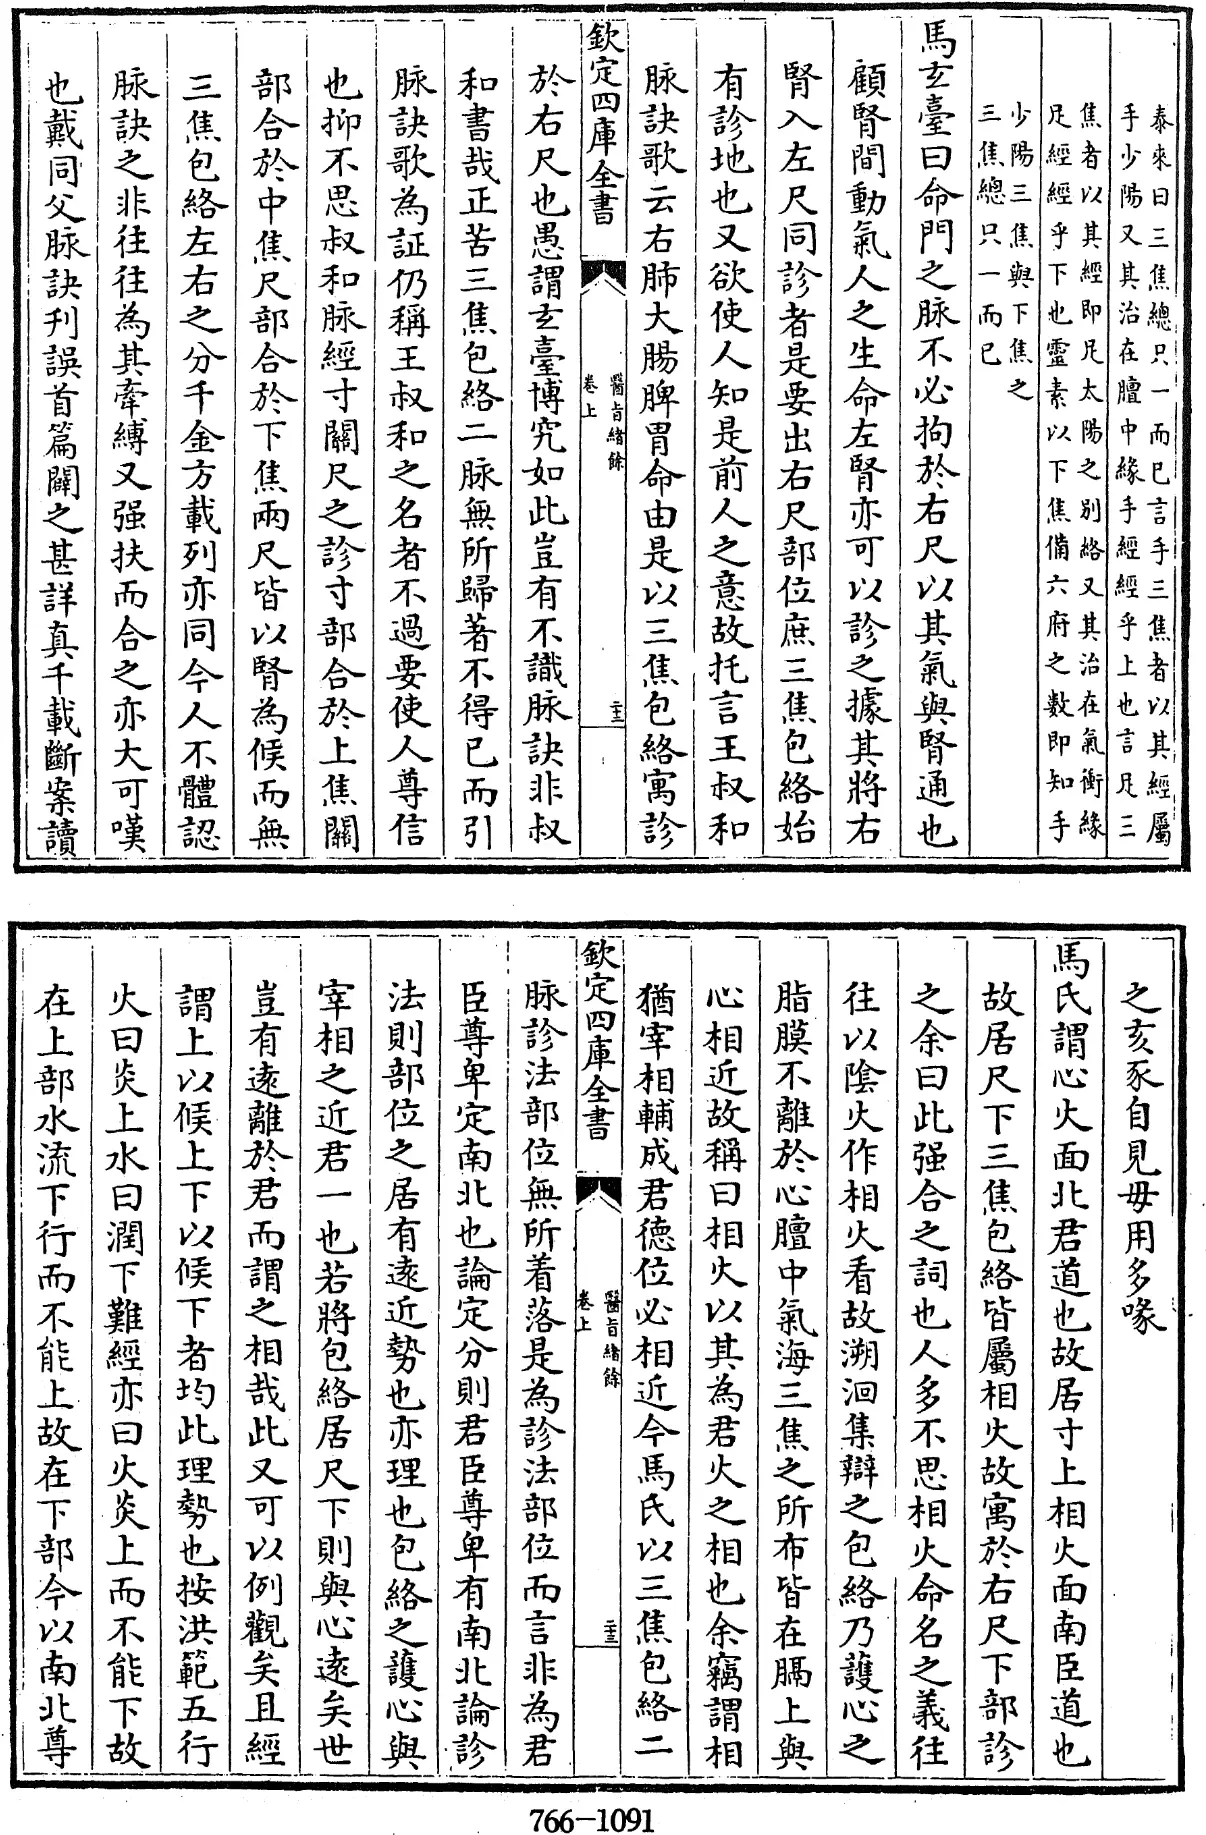 泰來曰三焦總只一而已言手三焦者以其經屬
手少陽又其治在膻中緣手經經乎上也言足三
焦者以其經即足太陽之別絡又其治在氣衝緣
足經經乎下也靈素以下焦備六府之數即知手
少陽三焦與下焦之
三焦總只一而已
馬玄臺曰命門之脉不必拘於右尺以其氣與腎通也
顧腎間動氣人之生命左腎亦可以診之據其將右
腎入左尺同診者是要出右尺部位庶三焦包絡始
有診地也又欲使人知是前人之意故托言王叔和
脉訣歌云右肺大腸脾胃命由是以三焦包絡寓診
欽定四庫全書
醫旨緒餘
卷上
二十三
於右尺也愚謂玄臺博究如此豈有不識脉訣非叔
和書哉正苦三焦包絡二脉無所歸著不得已而引
脉訣歌為証仍稱王叔和之名者不過要使人尊信
也抑不思叔和脉經寸關尺之診寸部合於上焦關
部合於中焦尺部合於下焦兩尺皆以腎為候而無
三焦包絡左右之分千金方載列亦同今人不體認
脉訣之非往往為其牽縛又强扶而合之亦大可嘆
也戴同父脉訣刋誤首篇闢之甚詳真千載斷案讀
之亥豕自見毋用多喙
馬氏謂心火面北君道也故居寸上相火面南臣道也
故居尺下三焦包絡皆屬相火故寓於右尺下部診
之余曰此强合之詞也人多不思相火命名之義往
往以陰火作相火看故溯洄集辯之包絡乃護心之
脂膜不離於心膻中氣海三焦之所布皆在膈上與
心相近故稱曰相火以其為君火之相也余竊謂相
猶宰相輔成君德位必相近今馬氏以三焦包絡二
欽定四庫全書
醫旨緒餘
卷上
二十三
脉診法部位無所着落是為診法部位而言非為君
臣尊卑定南北也論定分則君臣尊卑有南北論診
法則部位之居有遠近勢也亦理也包絡之護心與
宰相之近君一也若將包絡居尺下則與心遠矣世
豈有遠離於君而謂之相哉此又可以例觀矣且經
謂上以候上下以候下者均此理勢也按洪範五行
火曰炎上水曰潤下難經亦曰火炎上而不能下故
在上部水流下行而不能上故在下部今以南北尊
766-1091